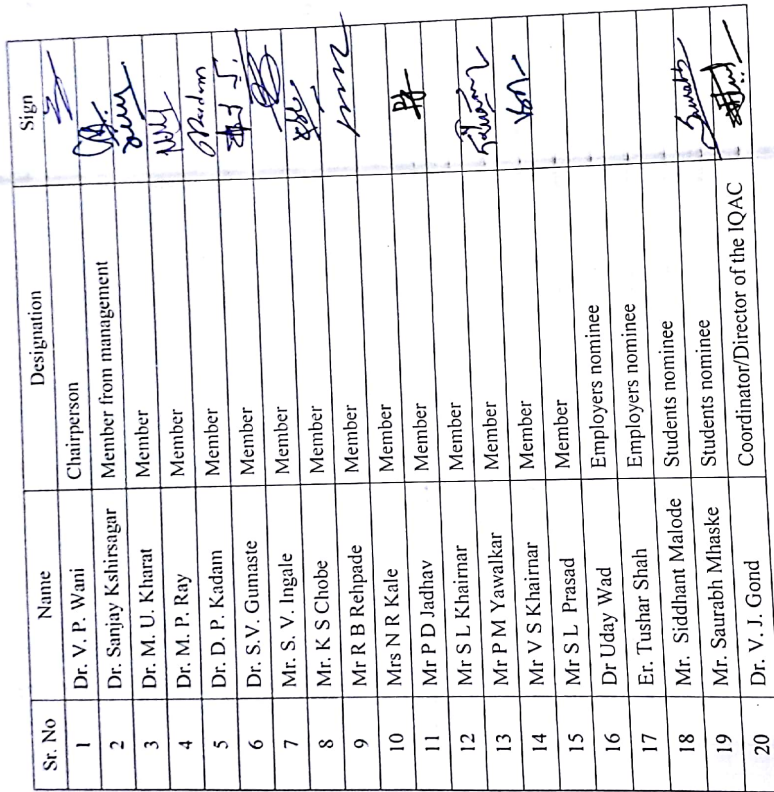 Sr. No Name Designation Sign
1 Dr. V. P. Wani Chairperson
2 Dr. Sanjay Kshirsagar Member from management
3 Dr. M. U. Kharat Member
4 Dr. M. P. Ray Member
5 Dr. D. P. Kadam Member
6 Dr. S.V. Gumaste Member
7 Mr. S. V. Ingale Member
8 Mr. K S Chobe Member
9 Mr R B Rehpade Member
10 Mrs N R Kale Member
11 Mr P D Jadhav Member
12 Mr S L Khairnar Member
13 Mr P M Yawalkar Member
14 Mr V S Khairnar Member
15 Mr S L Prasad Member
16 Dr Uday Wad Employers nominee
17 Er. Tushar Shah Employers nominee
18 Mr. Siddhant Malode Students nominee
19 Mr. Saurabh Mhaske Students nominee
20 Dr. V. J. Gond Coordinator/Director of the IQAC